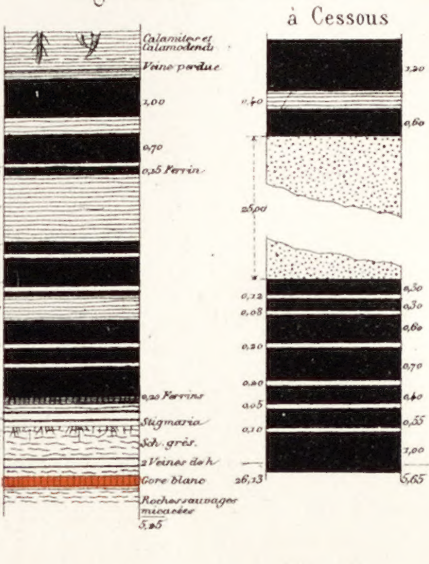 Calamites et
Calamodend.
Veine perdue
1,00
0,70
0,25 Perrin
0,20 Perrins
Stigmaria
Sch. grés.
2 Veines de h
Gore blanc
Roches sauvages
micacées
5,25
à Cessous
1,20
0,40
0,60
25,00
0,30
0,12
0,30
0,08
0,60
0,20
0,70
0,20
0,40
0,05
0,55
0,10
1,00
26,13
5,65